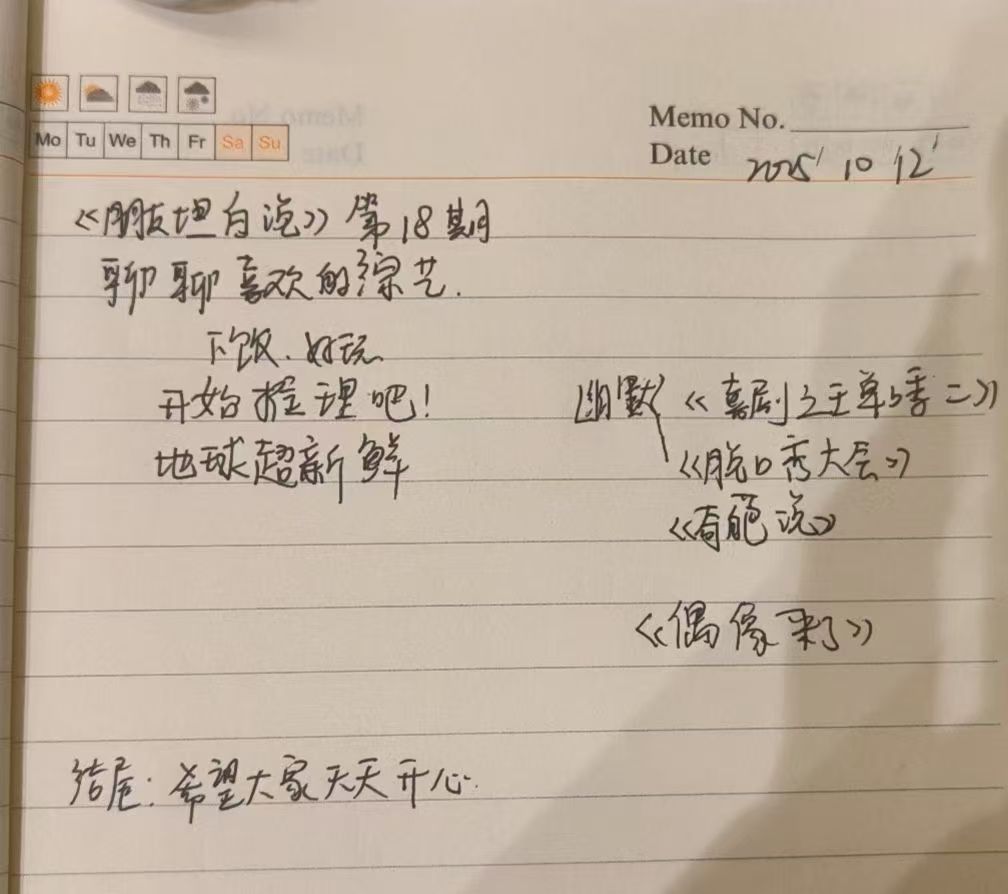 Mo Tu We Th Fr Sa Su
Memo No.
Date 2025' 10 '12'
《朋友坦白说》第18期
聊聊喜欢的综艺.
下饭、好玩
开始推理吧!
地球超新鲜
幽默 《喜剧之王单口季二》
《脱口秀大会》
《奇葩说》
《偶像来了》
结尾:希望大家天天开心.